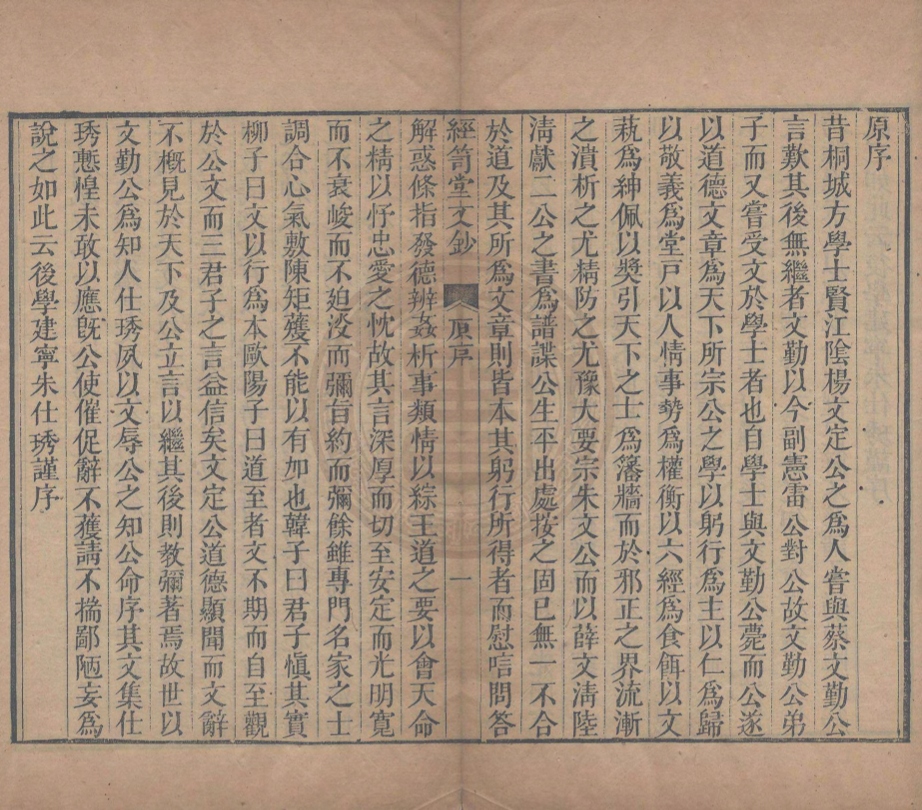 原序
昔桐城方學士賢江陰楊文定公之爲人嘗與蔡文勤公
言歎其後無繼者文勤以今副憲雷公對公故文勤公弟
子而又嘗受文於學士者也自學士與文勤公薨而公遂
以道德文章爲天下所宗公之學以躬行爲主以仁爲歸
以敬義爲堂戸以人情事勢爲權衡以六經爲食餌以文
蓺爲紳佩以奬引天下之士爲籓牆而於邪正之界流漸
之潰析之尤精防之尤豫大要宗朱文公而以薛文淸陸
淸獻二公之書爲譜諜公生平出處按之固已無一不合
於道及其所爲文章則皆本其躬行所得者而慰唁問答
經笥堂文鈔 原序 一
解惑條指發德辨姦析事類情以綜王道之要以會天命
之精以忬忠愛之忱故其言深厚而切至安定而光明寬
而不衰峻而不廹淡而彌旨約而彌餘雖專門名家之士
調合心氣敷陳矩矱不能以有加也韓子曰君子愼其實
柳子曰文以行爲本歐陽子曰道至者文不期而自至觀
於公文而三君子之言益信矣文定公道德顯聞而文辭
不槪見於天下及公立言以繼其後則敎彌著焉故世以
文勤公爲知人仕琇夙以文辱公之知公命序其文集仕
琇慙惶未敢以應旣公使催促辭不獲請不揣鄙陋妄爲
說之如此云後學建寧朱仕琇謹序